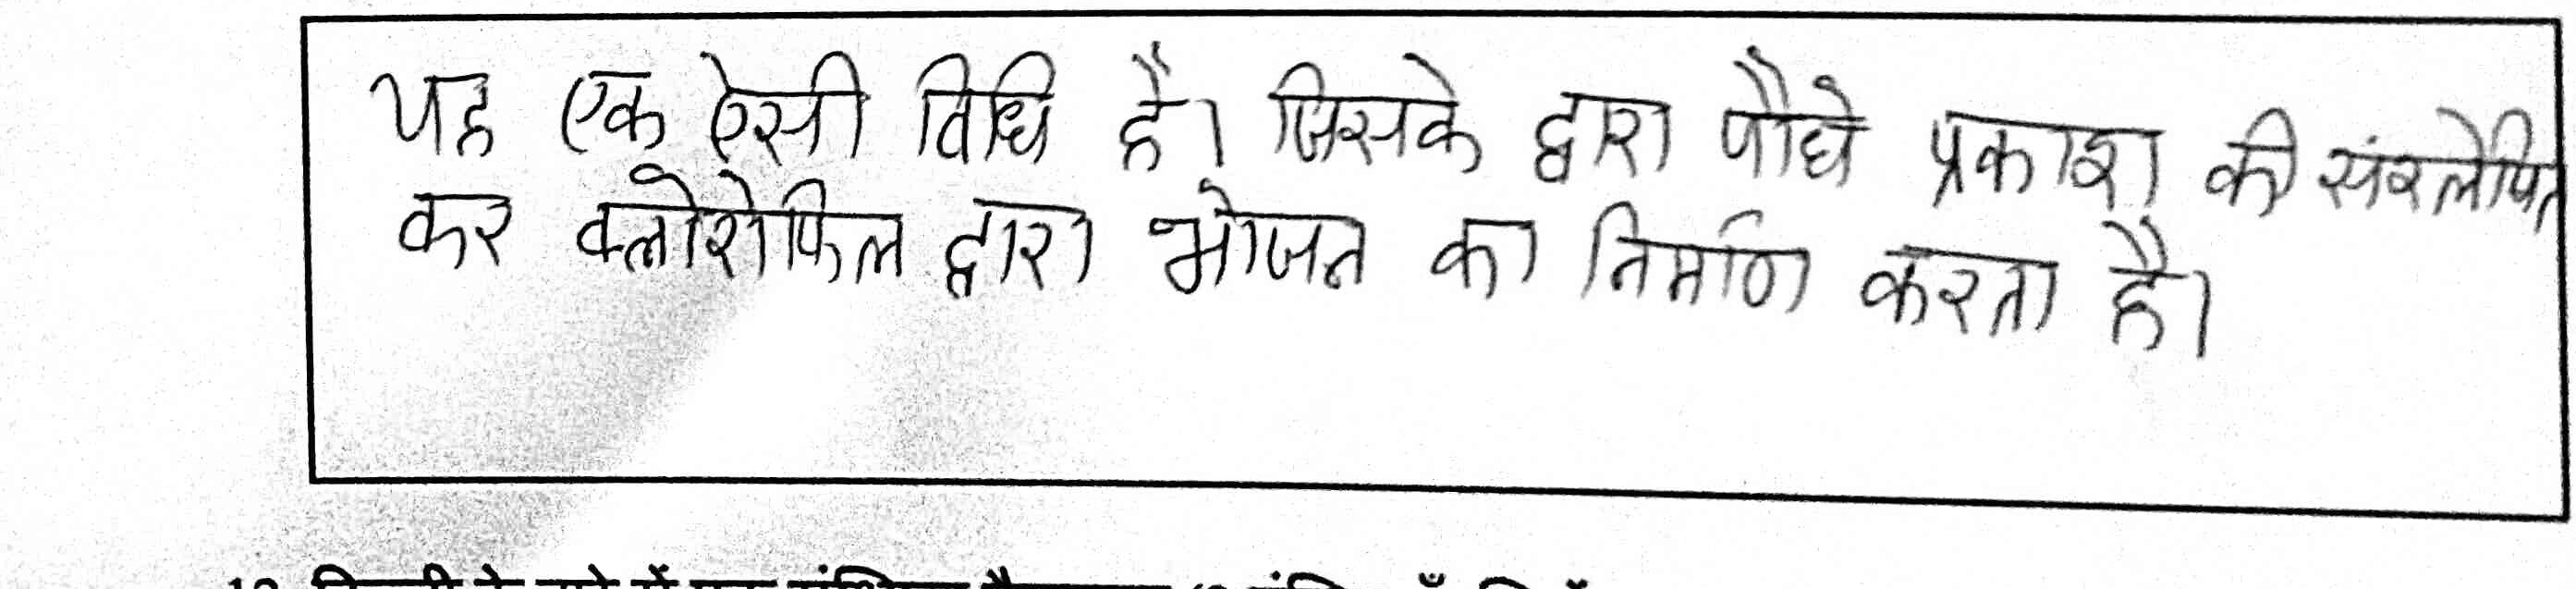 यह एक ऐसी विधि है। जिसके द्वारा पौधे प्रकाश की संश्लेषित
कर क्लोरोफिल द्वारा भोजन का निर्माण करता है।